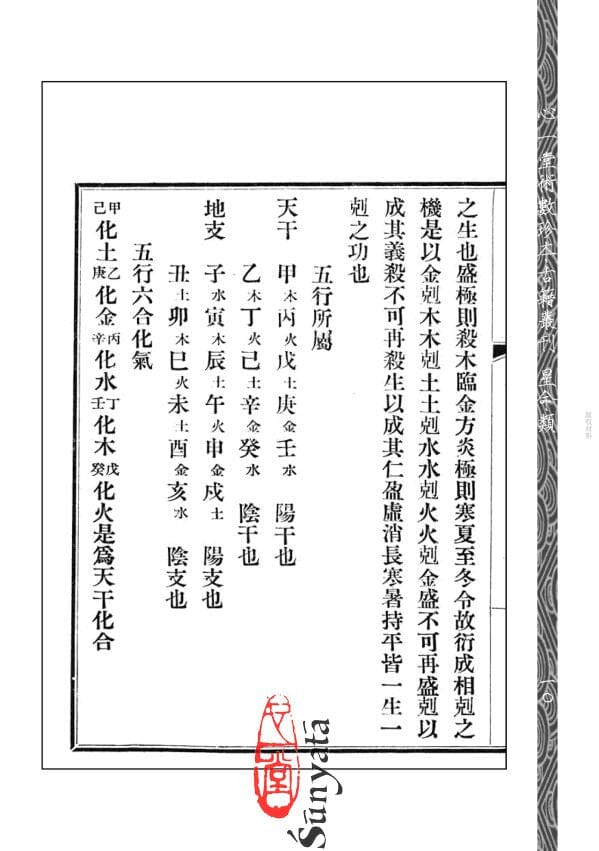 心一堂術數珍本古籍叢刊 星命類
一〇
之生也盛極則殺木臨金方炎極則寒夏至冬令故衍成相剋之
機是以金剋木木剋土土剋水水剋火火剋金盛不可再盛剋以
成其義殺不可再殺生以成其仁盈虛消長寒暑持平皆一生一
剋之功也
五行所屬
天干 甲木丙火戊土庚金壬水 陽干也
乙木丁火己土辛金癸水 陰干也
地支 子水寅木辰土午火申金戌土 陽支也
丑土卯木巳火未土酉金亥水 陰支也
五行六合化氣
甲己化土乙庚化金丙辛化水丁壬化木戊癸化火是為天干化合
心一堂
Śūnyatā
版权材料